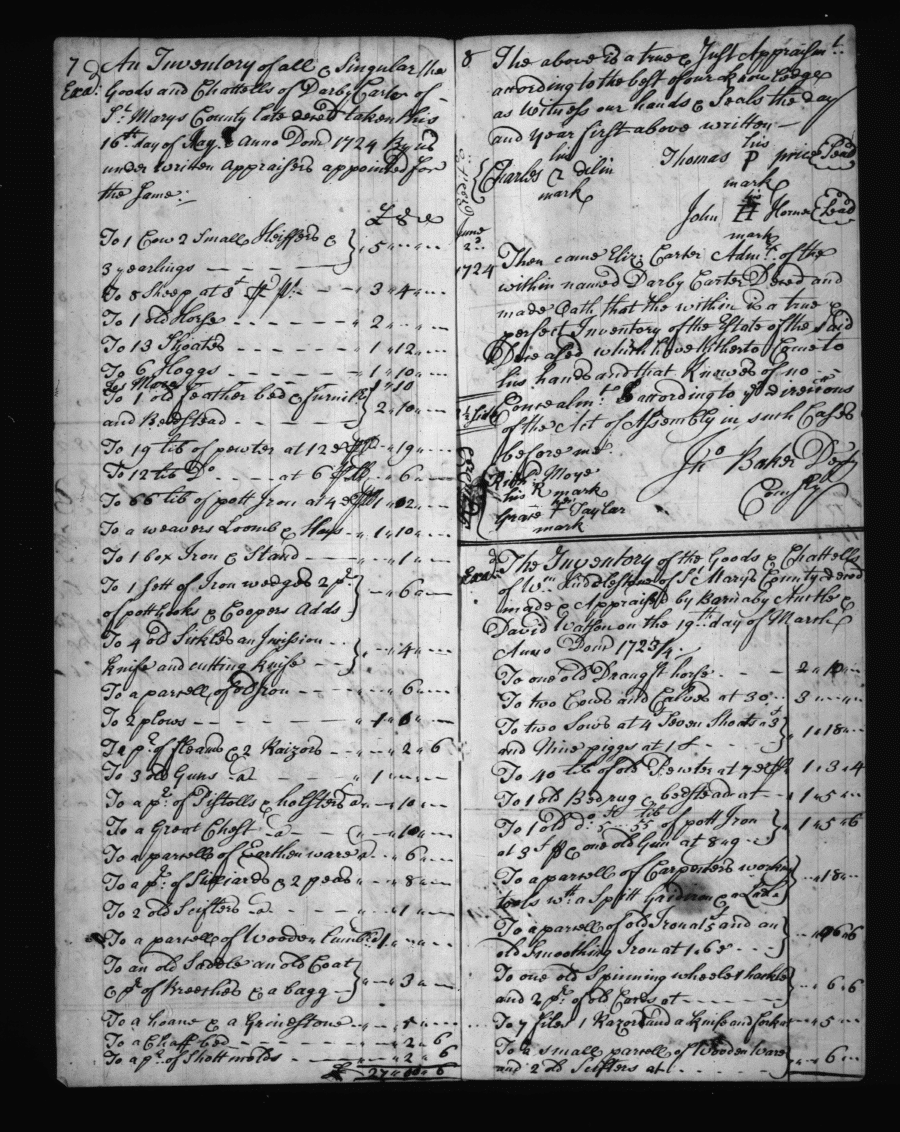 7 An Inventory of all & Singular the
Exad. Goods and Chattells of Darby Carter of
St. Marys County late deced taken this
16th day of May Anno Dom 1724 By us
under written Appraisers appointed for
the Same:
£ s d
To 1 Cow 2 Small Heiffers &
3 yearlings } " 5 " — " —
To 8 Sheep at 8s " 3 " 4 " —
To 1 old Horse " 2 " — " —
To 13 Shoates 1 " 12 " —
To 6 Hoggs " 1 " 10 " —
To 1 old feather bed & furniture
and Bedstead } 2 " 10 " —
To 19 lib of pewter at 12d " 19 " —
To 12 lib Do at 6 " 6 " —
To 66 lib of pott Iron at 4d
To a weavers Loomb & Slays " 1 " 10 " —
To 1 box Iron & Stand " — " 1 " —
To 1 Sett of Iron wedges 2 pr
of potthooks & Coopers Adds } " — " 6 " —
To 4 old Sickles an Incission
knife and cutting knife } " — " 4 " —
To a parcell of old Iron " — " 6 " —
To 2 plows
To a pr. of fleams & 2 Raizors " — " 2 " 6
To 3 old Guns a " 1 " — " —
To a pr. of Pistolls & holsters a " — " 10 " —
To a Great Chest a " — " 10 " —
To a parcell of Earthen ware a " — " 6 " —
To a pr. of Stilliards & 2 peas " — " 8 " —
To 2 old Scifters a " — " 1 " —
To a parcell of Wooden Lumber 1 " — " —
To an old Saddle an old Coat
& pr. of Breeches & a bagg } " — " 3 " —
To a hoane & a Grinestone " — " 5 " —
To a Chaff bed " — " 2 " 6
To a pr. of Shott molds " — " 2 " 6
8 The above is a true & Just Appraismt.
according to the best of our knowledge
as Witness our hands & Seals the day
and year first above written
his
Charles
mark
his
Thomas P price Seal
mark
his
John H Horne Seal
mark
June
2d.
1724
Then came Eliz: Carter Admx. of the
within named Darby Carter Deced and
made Oath that the within is a true &
perfect Inventory of the Estate of the Said
Deceased which have hitherto Come to
his hands and that Knowes of no
Concealmt. according to ye directions
of the Act of Assembly in such Cases
before me
Jno Baker Dep
Comsry
Moye
his R mark
Grace Taylar
mark
Exad.
The Inventory of the Goods & Chattells
of Wm. of St Marys County deced
made & Appraised by Barnaby Anctle &
David Watson on the 19th day of March
Anno Dom 1723/4
To one old Draught horse 2 " 10 " —
To two Cows and Calves at 30s 3 " — " —
To two Sows at 4 Seven Shoats a 3s
and Nine piggs at 1s } 1 " 18 " —
To 40 lib of old Pewter at 7d 1 " 3 " 4
To 1 old Bed rug & bedstead at 1 " 5 " —
To 1 old do. 55 lib of pott Iron
at 3 & one old Gun at 8 } 1 " 5 " 6
To a parcell of Carpenters working
tools wth a Spitt Gridiron & a Ladle } " — " 18 " —
To a parcell of old Iron at 5 and an
old Smoothing Iron at 1.6
To one old Spinning wheele 1 hackle
and 2 pr. of old Cards at } " — " 6 " 6
To 7 files 1 Razor and a knife and forke " — " 5 " —
To a small parcell of Wooden Ware
and 2 old Scifters at } " — " 6 " —